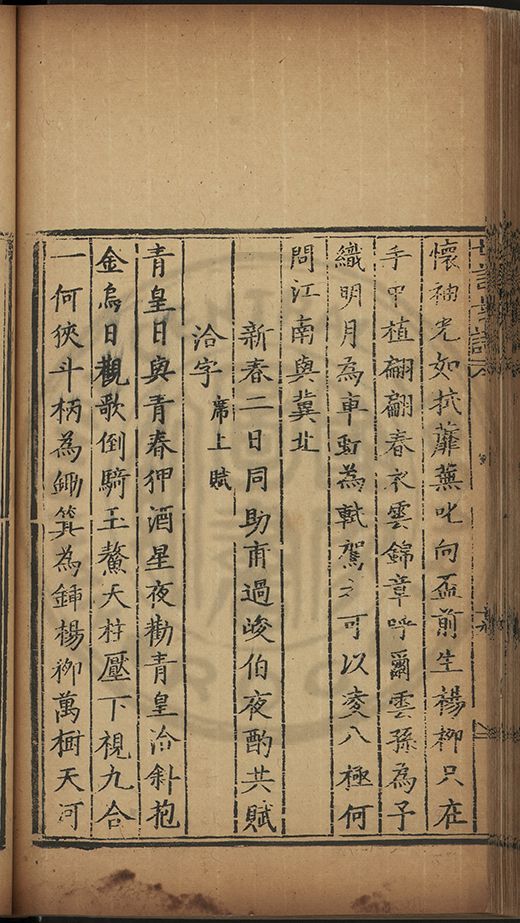 懷袖光如抗蘼蕪叱向盃前生楊柳只在
手甲植翩翩春衣雲錦章呼爾雲孫為子
織明月為車虹為軾駕之可以麥八極何
問江南與冀北
新春二日同助甫過峻伯夜酌共賦
洽字 席上賦
青皇日與青春狎酒星夜勸青皇洽斜抱
金烏日觀歌倒騎玉鰲天柱壓下視九合
一何狹斗柄為鋤箕為鍤楊柳萬樹天河